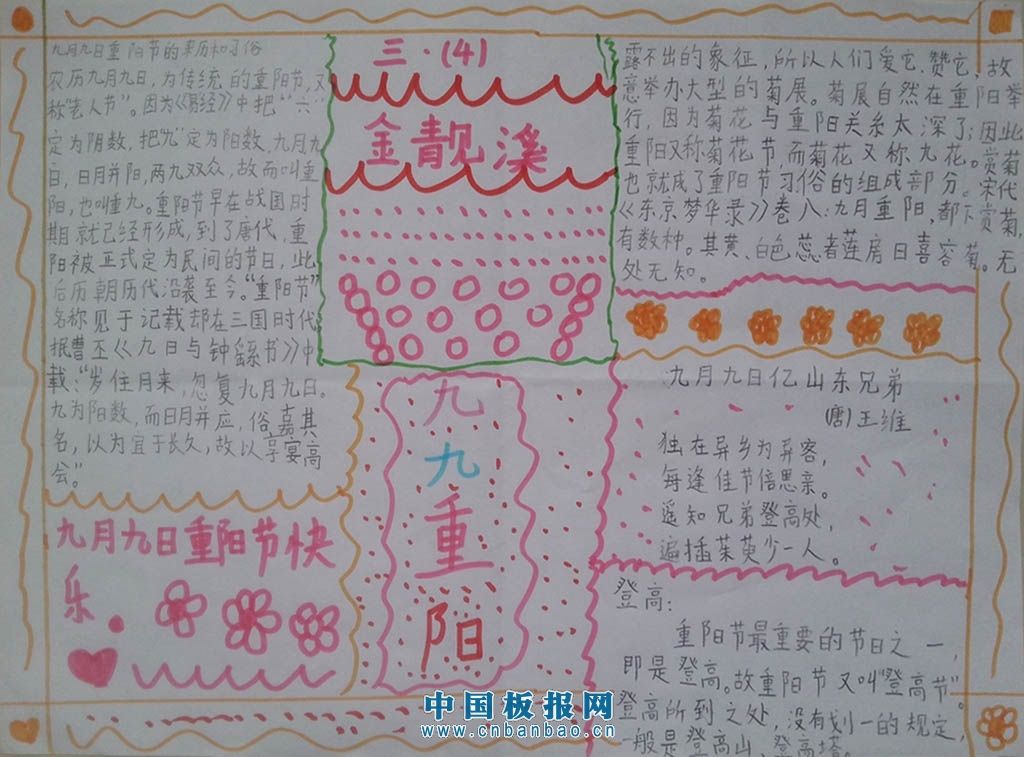 九月九日重阳节的来历和习俗
农历九月九日，为传统的重阳节，又
称“老人节”。因为《易经》中把“六”
定为阴数，把“九”定为阳数，九月九
日，日月并阳，两九双众，故而叫重
阳，也叫重九。重阳节早在战国时
期就已经形成，到了唐代，重
阳被正式定为民间的节日，此
后历朝历代沿袭至今。“重阳节”
名称见于记载却在三国时代
据曹丕《九日与钟繇书》中
载：“岁往月来，忽复九月九日。
九为阳数，而日月并应，俗嘉其
名，以为宜于长久，故以享宴高
会。”
九月九日重阳节快
乐。
三·(4)
金靓溪
九
九
重
阳
露不出的象征，所以人们爱它、赞它，故
意举办大型的菊展。菊展自然在重阳举
行，因为菊花与重阳关系太深了；因此
重阳又称菊花节，而菊花又称九花。赏菊
也就成了重阳节习俗的组成部分。宋代
《东京梦华录》卷八：九月重阳，都下赏菊，
有数种。其黄、白色蕊者莲房日喜容菊。无
处无知。
九月九日亿山东兄弟
(唐)王维
独在异乡为异客，
每逢佳节倍思亲。
遥知兄弟登高处，
遍插茱萸少一人。
登高：
重阳节最重要的节日之一，
即是登高。故重阳节又叫“登高节”。
登高所到之处，没有划一的规定，
一般是登高山、登高塔。
中国板报网
www.cnbanbao.cn